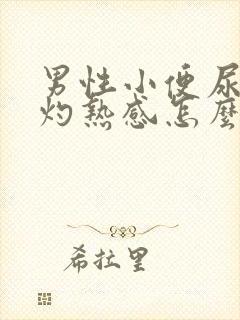 男性小便尿
灼热感怎麼
希拉里